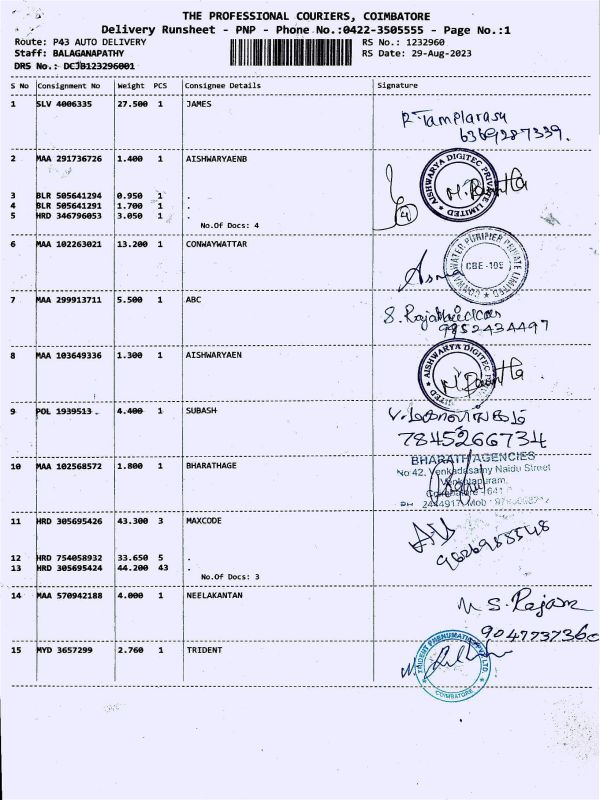 THE PROFESSIONAL COURIERS, COIMBATORE
Delivery Runsheet - PNP - Phone No.:0422-3505555 - Page No.:1
Route: P43 AUTO DELIVERY RS No.: 1232960
Staff: BALAGANAPATHY RS Date: 29-Aug-2023
DRS No.: DCJB123296001
S No Consignment No Weight PCS Consignee Details Signature
1 SLV 4006335 27.500 1 JAMES
6369287339.
2 MAA 291736726 1.400 1 AISHWARYAENB
AISHWARYA DIGITEC PRIVATE LIMITED
3 BLR 505641294 0.950 1 .
4 BLR 505641291 1.700 1 .
5 HRD 346796053 3.050 1 .
No.Of Docs: 4
4
6 MAA 102263021 13.200 1 CONWAYWATTAR
WATER PURIFIER PRIVATE LIMITED
CBE -105
7 MAA 299913711 5.500 1 ABC
9952434497
8 MAA 103649336 1.300 1 AISHWARYAEN
AISHWARYA DIGITEC PRIVATE LIMITED
9 POL 1939513 4.400 1 SUBASH
7845266734
10 MAA 102568572 1.800 1 BHARATHAGE
BHARATH AGENCIES
No 42, Venkadasamy Naidu Street
11 HRD 305695426 43.300 3 MAXCODE
12 HRD 754058932 33.650 5 .
13 HRD 305695424 44.200 43 .
No.Of Docs: 3
14 MAA 570942188 4.000 1 NEELAKANTAN
S. Rajam
9047737360
15 MYD 3657299 2.760 1 TRIDENT
TRIDENT PNEUMATICS PVT LTD
COIMBATORE